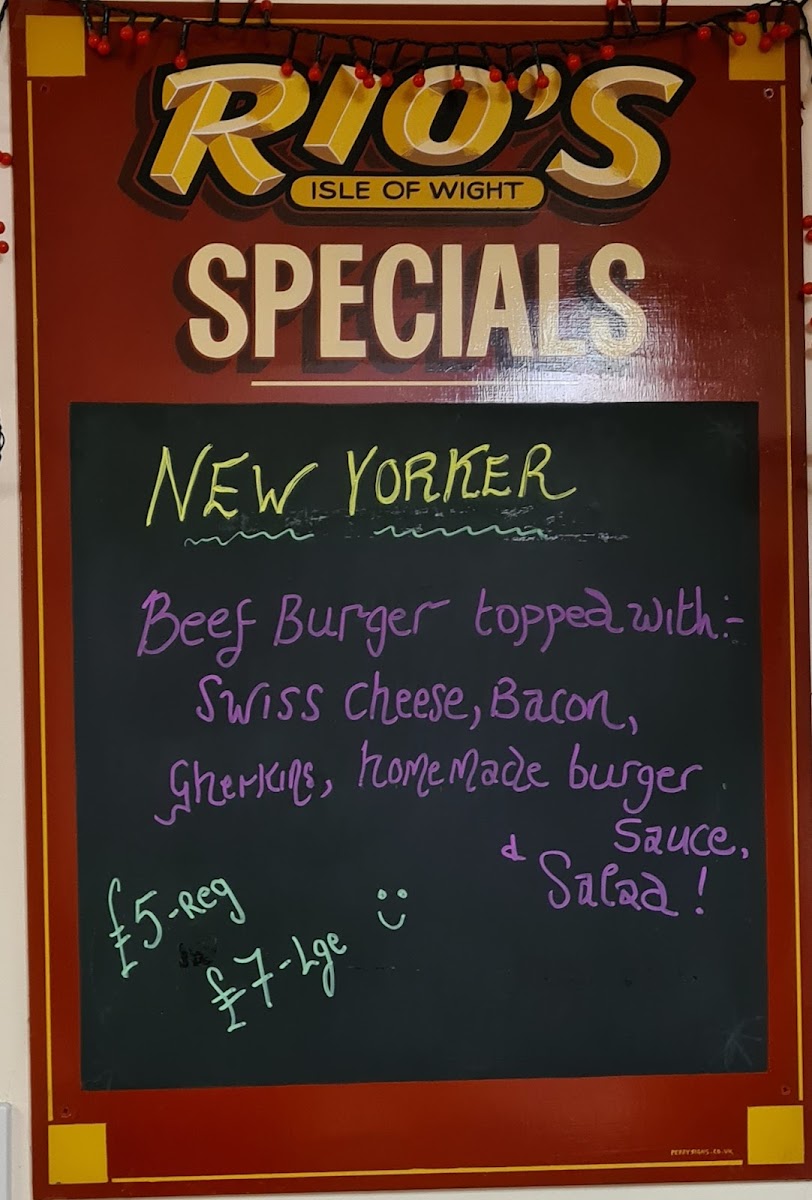 RIO'S
ISLE OF WIGHT
SPECIALS
NEW YORKER
Beef Burger topped with:-
Swiss Cheese, Bacon,
Gherkins, homemade burger
Sauce,
& Salad!
£5-Reg
£7-Lge